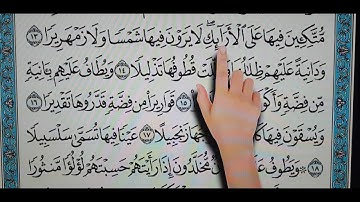 مُّتَّكِـِٔينَ فِيهَا عَلَى ٱلۡأَرَآئِكِۖ لَا يَرَوۡنَ فِيهَا شَمۡسٗا وَلَا زَمۡهَرِيرٗا ١٣
وَدَانِيَةً عَلَيۡهِمۡ ظِلَٰلُهَا وَذُلِّلَتۡ قُطُوفُهَا تَذۡلِيلٗا ١٤ وَيُطَافُ عَلَيۡهِم بِـَٔانِيَةٖ
مِّن فِضَّةٖ وَأَكۡوَابٖ ١٥ قَوَارِيرَاْ مِن فِضَّةٖ قَدَّرُوهَا تَقۡدِيرٗا ١٦
وَيُسۡقَوۡنَ فِيهَا كَأۡسٗا زَنجَبِيلًا ١٧ عَيۡنٗا فِيهَا تُسَمَّىٰ سَلۡسَبِيلٗا
١٨ ۞ وَيَطُوفُ عَلَيۡهِمۡ مُّخَلَّدُونَ إِذَا رَأَيۡتَهُمۡ حَسِبۡتَهُمۡ لُؤۡلُؤٗا مَّنثُورٗا